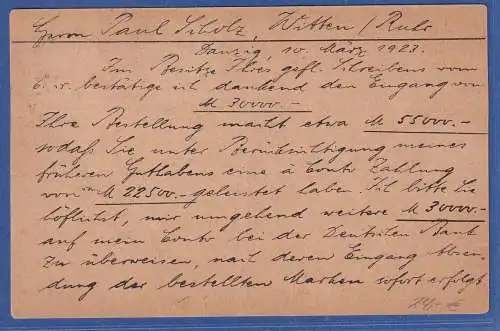 Herrn Paul Scholz, Witten / Ruhr
Danzig 10. März 1923.
Im Besitze Ihres gefl. Schreibens vom
6. ds. bestätige ich dankend den Eingang von
M 30000.-
Ihre Bestellung macht etwa M 55000.-
sodaß Sie unter Berücksichtigung meines
früheren Guthabens eine à Conto Zahlung
von M 22500.- geleistet haben. Ich bitte Sie
höflichst, mir umgehend weitere M 30000.-
auf mein Conto bei der Deutschen Bank
zu überweisen, nach deren Eingang Absen-
dung der bestellten Marken sofort erfolgt